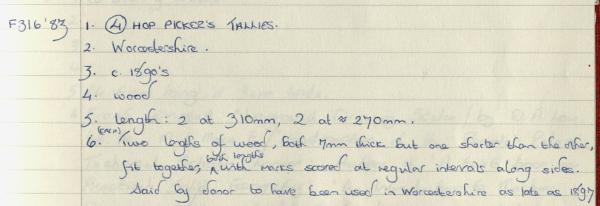 F316'83 1. ④ HOP PICKER'S TALLIES.
2. Worcestershire.
3. c. 1890's
4. wood
5. Length: 2 at 310mm, 2 at ≈ 270mm.
6. (EACH) Two lengths of wood, both 7mm thick but one shorter than the other,
fit together, both lengths with marks scored at regular intervals along sides.
Said by donor to have been used in Worcestershire as late as 1897